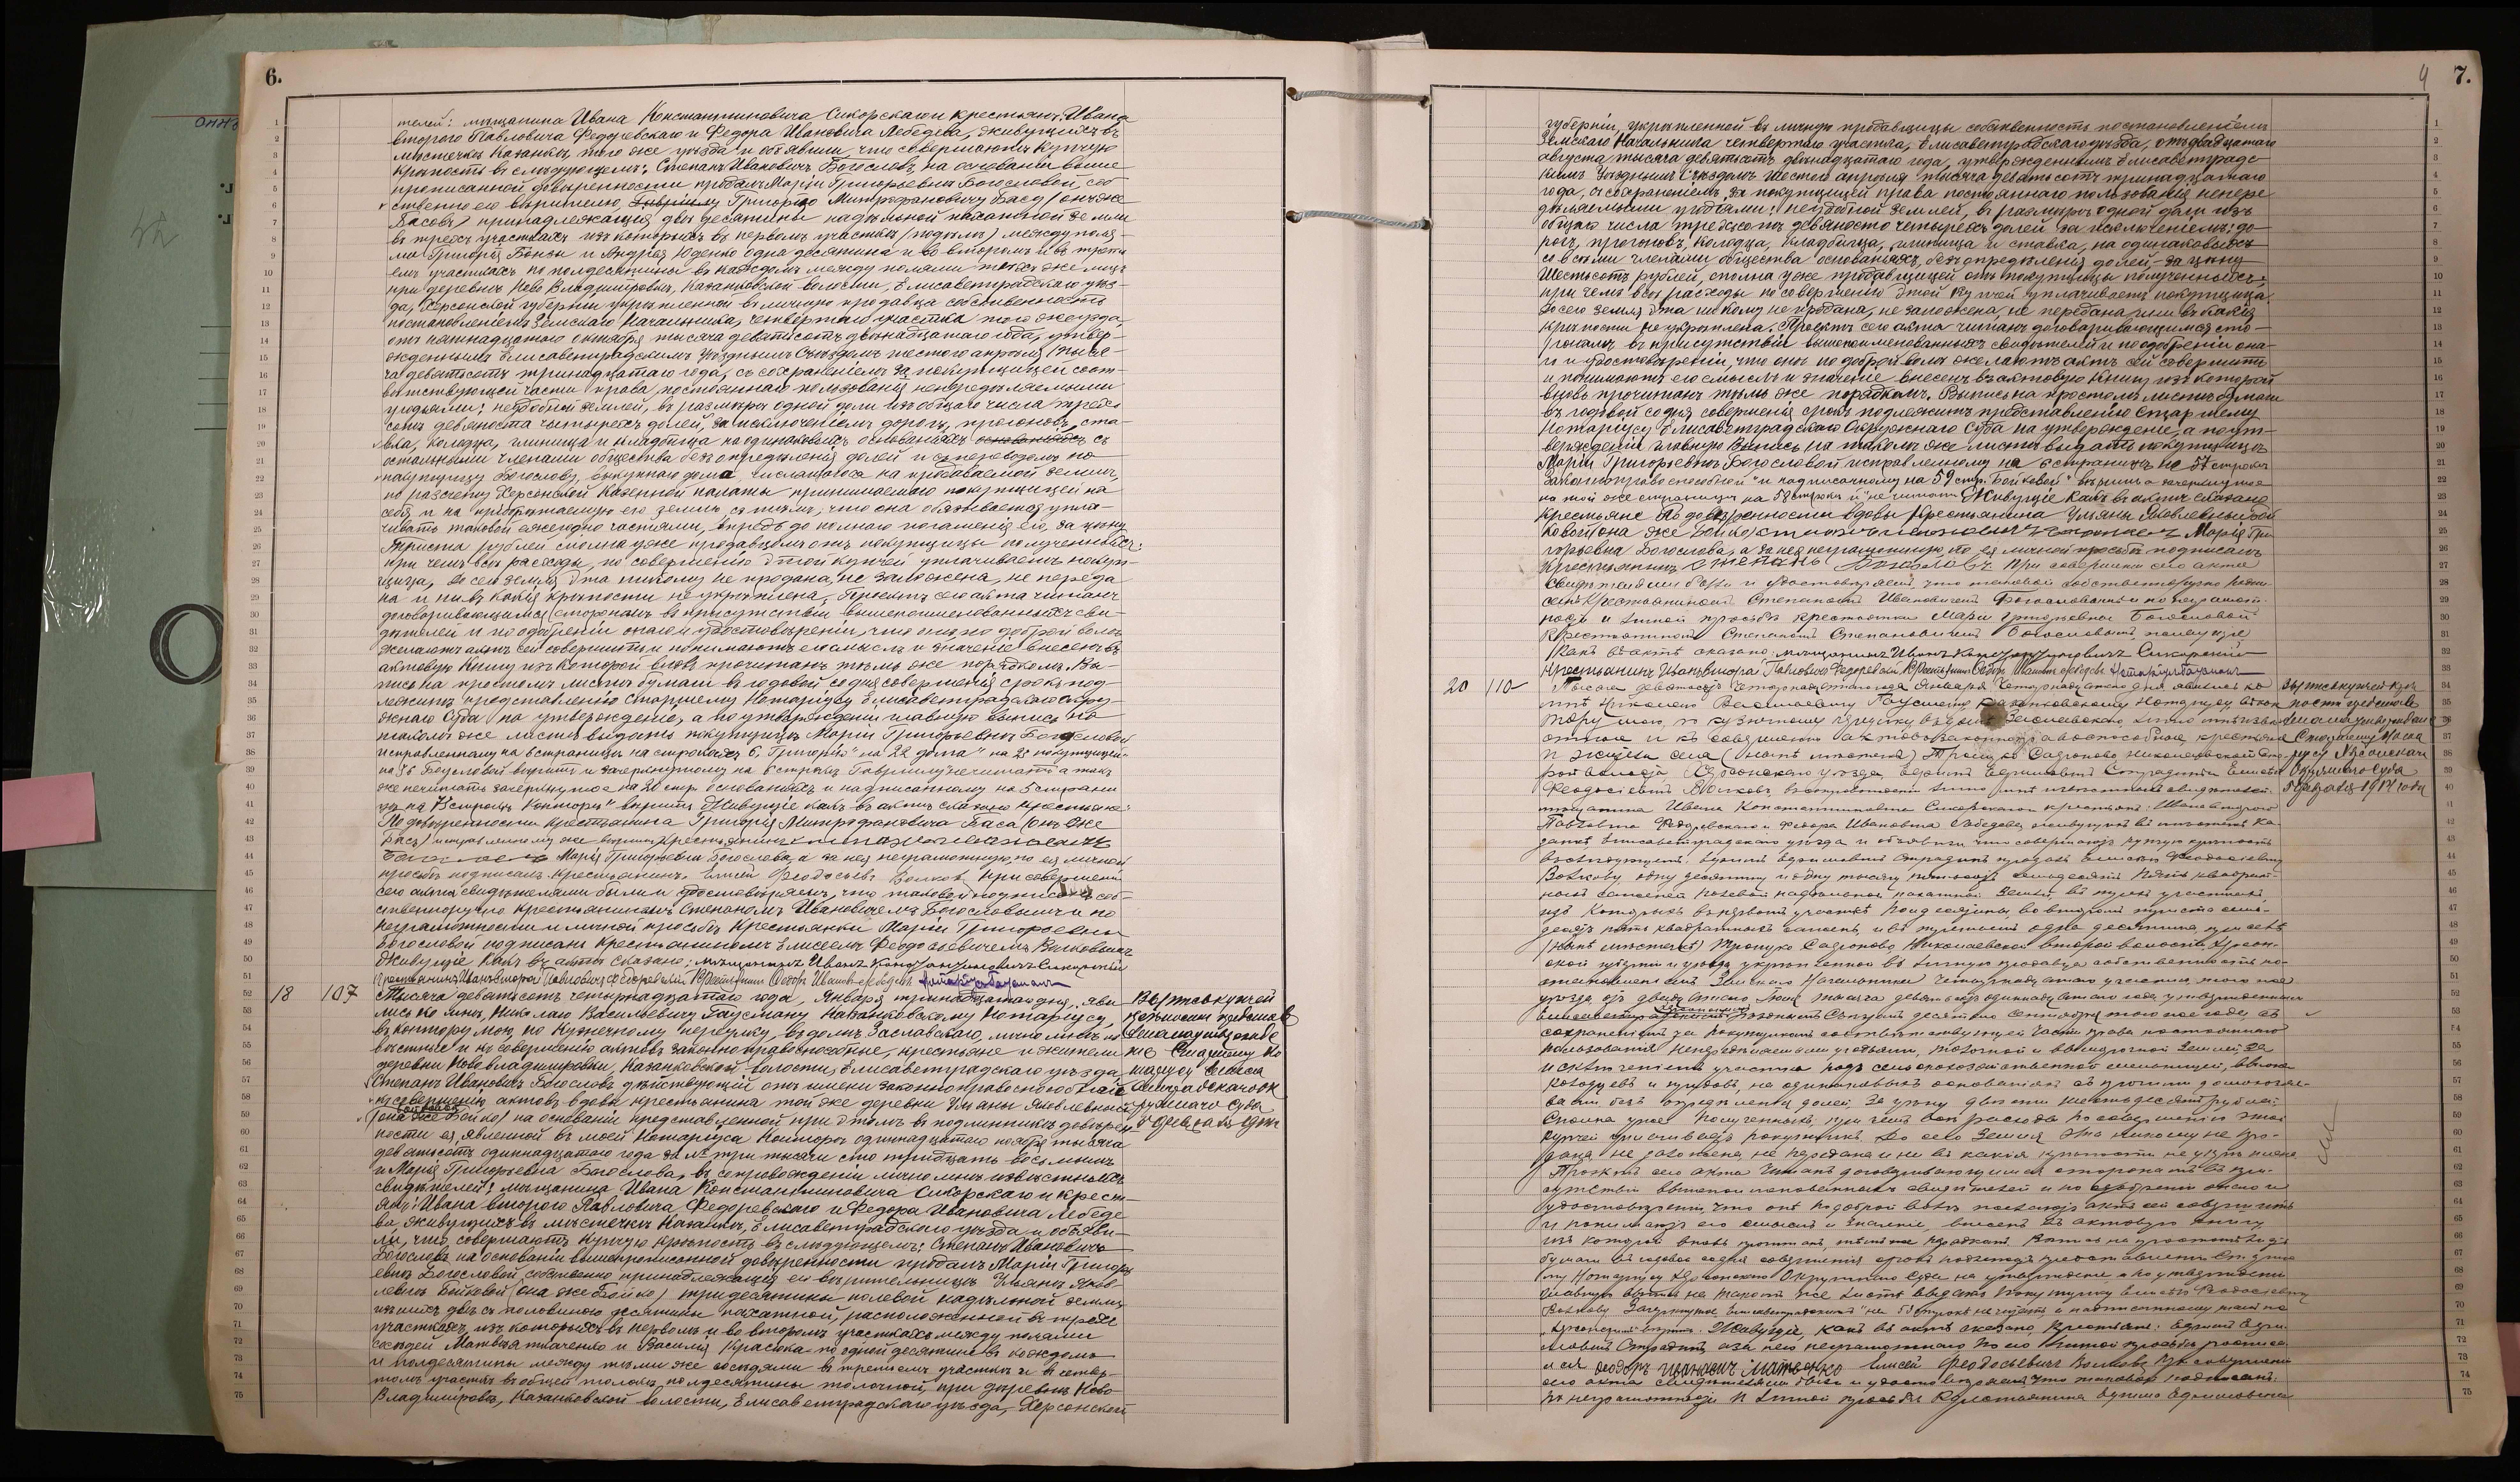 6.
телей: мѣщанина Ивана Константиновича Сикорскаго и крестьянъ: Ивана
второго Павловича Федоревскаго и Федора Ивановича Лебедева, живущихъ въ
мѣстечкѣ Казанкѣ, того же уѣзда и объявили, что совершаютъ купчую
крѣпость въ слѣдующемъ: Степанъ Ивановичъ Богословъ, на основаніи выше-
прописанной довѣренности продалъ Маріи Григорьевнѣ Богословой, соб-
ственно его вѣрителю, Гавріилу Григорію Митрофановичу Басу (онъ же
Басовъ) принадлежащія двѣ десятины надѣльной пахатной земли
въ трехъ участкахъ изъ которыхъ въ первомъ участкѣ (подъ) между поля-
ми Григорія и Андрея одна десятина и во второмъ и въ треть-
емъ участкахъ по полдесятины въ каждомъ между полями тѣхъ же лицъ
при деревнѣ Ново Владиміровкѣ, Казанковской волости, Елисаветградскаго уѣз-
да, Херсонской губерніи укрѣпленной въ личную продавца собственность
постановленіемъ Земскаго Начальника, четвертаго участка того же уѣзда,
отъ пятнадцатаго октября тысяча девятьсотъ двѣнадцатаго года, утвер-
жденнымъ Елисаветградскимъ Уѣзднымъ Съѣздомъ шестого апрѣля тыся-
ча девятьсотъ тринадцатаго года, съ сохраненіемъ за покупщицей соот-
вѣтствующей части права, постояннаго пользованія непередѣляемыми
угодьями: неудобной землей, въ размѣрѣ одной доли изъ общаго числа трехъ
сотъ девяноста четырехъ долей, за исключеніемъ дорогъ, прогоновъ, ста-
вка, колодца, глинища и кладбища на одинаковыхъ основаніяхъ основаніяхъ съ
остальными членами общества безъ опредѣленія долей и съ переводомъ на
покупщицу Богослову, выкупнаго долга числящагося на продаваемой землѣ,
по разсчету Херсонской Казенной палаты принимаемаго покупщицей на
себя и на пріобрѣтаемую его землю, съ тѣмъ, что она обязывается упла-
чивать таковой ежегодно частями, впредь до полнаго погашенія его, за цѣну
Триста рублей сполна уже продавцомъ отъ покупщицы полученныхъ:
при чемъ всѣ расходы, по совершенію этой купчей уплачиваетъ покуп-
щица, до сего земля эта никому не продана, не заложена, не переда-
на и ни въ какія крѣпости не укрѣплена. Проектъ сего акта читанъ
договаривающимся сторонамъ въ присутствіи вышепоименованныхъ сви-
дѣтелей и по одобреніи онаго и удостовѣреніи, что они по доброй волѣ
желаютъ актъ сей совершить и понимаютъ его смыслъ и значеніе внесенъ въ
актовую книгу изъ которой вновь прочитанъ тѣмъ же порядкомъ. Вы-
пись на простомъ листѣ бумаги въ годовой со дня совершенія срокъ под-
лежитъ представленію Старшему Нотаріусу Елисаветградскаго Окру-
жнаго Суда на утвержденіе, а по утвержденіи главную выпись на
такомъ же листѣ выдать покупщицѣ Маріи Григорьевнѣ Богословой
исправленному на 6 страницѣ на строкахъ 6 „Григорію“ на 22 „дома“ на 25 покупщицей
на 36 Богословой вѣрить и зачеркнутому на 6 строкѣ Гавріилу не читать а такъ
же не читать зачеркнутое на 20 стр. основаніяхъ и надписанному на 5 страни-
цѣ на 73 строкѣ Конторы“ вѣрить Живущіе какъ въ актѣ сказано крестьяне:
По довѣренности крестьянина Григорія Митрофановича Баса (онъ же
Басъ) исправленному же вѣрить Крестьянинъ Степанъ Ивановичъ
Богословъ Марія Григорьевна Богослова, а за нея неграмотную, по ея личной
просьбѣ подписалъ крестьянинъ Елисей Феодосьевъ Волковъ При совершеніи
сего акта свидѣтелями были и удостовѣряемъ, что таковой подписанъ соб-
ственноручно крестьяниномъ Степаномъ Ивановичемъ Богословымъ и по
неграмотности и личной просьбѣ Крестьянки Маріи Григорьевны
Богословой подписанъ крестьяниномъ Елисеемъ Феодосьевичемъ Волковымъ
Живущіе какъ въ актѣ сказано: мѣщанинъ Иванъ Константиновичъ Сикорскій
Крестьянинъ Иванъ второй Павловичъ Федоревскій Крестьянинъ Федоръ Ивановъ Лебедевъ Нотаріусъ Гаусманъ
18 107 Тысяча девятьсотъ четырнадцатаго года, Января тринадцатаго дня, яви-
лись ко мнѣ, Николаю Васильевичу Гаусману Казанковскому Нотаріусу,
въ контору мою, по Кузнечному переулку, въ домѣ Заславскаго, лично мнѣ из-
вѣстные и къ совершенію актовъ законно правоспособные, крестьяне и жители
деревни Ново Владиміровки, Казанковской волости, Елисаветградскаго уѣзда,
Степанъ Ивановичъ Богословъ дѣйствующій отъ имени законно правоспособной
къ совершенію актовъ вдовы крестьянина той же деревни Ульяны Яковлевны
Бойковой
(она же Бойко) на основаніи представленной при этомъ въ подлинникѣ довѣрен-
ности ея, явленной въ моей Нотаріуса Конторѣ одинадцатаго ноября тысяча
девятьсотъ одинадцатаго года за № три тысячи сто тридцать восьмымъ
и Марія Григорьевна Богослова, въ сопровожденіи лично мнѣ извѣстныхъ
свидѣтелей: мѣщанина Ивана Константиновича Сикорскаго и кресть-
янъ: Ивана второго Павловича Федоревскаго и Федора Ивановича Лебеде-
ва, живущихъ въ мѣстечкѣ Казанкѣ, Елисаветградскаго уѣзда и объяви-
ли, что, совершаютъ купчую крѣпость въ слѣдующемъ: Степанъ Ивановичъ
Богословъ, на основаніи вышепрописанной довѣренности продалъ Маріи Григорь-
евнѣ Богословой, собственно принадлежащія ея вѣрительницѣ Ульянѣ Яков-
левнѣ Бойковой (она же Бойко) три десятины полевой надѣльной земли
изъ нихъ двѣ съ половиною десятины пахатной, расположенной въ трехъ
участкахъ, изъ которыхъ въ первомъ и во второмъ участкахъ между полями
сосѣдей Матвѣя Ткаченко и Василія Красюка по одной десятинѣ въ каждомъ
и полдесятины между тѣми же сосѣдями въ третьемъ участкѣ и въ четвер-
томъ участкѣ въ общей толокѣ, полдесятины толочной, при деревнѣ Ново
Владиміровкѣ, Казанковской волости, Елисаветградскаго уѣзда, Херсонской
Выпись купчей
крѣпости
на утвержде-
ніе Старшему Но-
таріусу Елиса-
ветградскаго Ок-
ружнаго Суда
4 7.
губерніи, укрѣпленной въ личную продавщицы собственность постановленіемъ
Земскаго Начальника четвертаго участка, Елисаветградскаго уѣзда, отъ двадцатаго
августа тысяча девятьсотъ двѣнадцатаго года, утвержденнымъ Елисаветградс-
кимъ Уѣзднымъ Съѣздомъ Шестого апрѣля тысяча девятьсотъ тринадцатаго
года, съ сохраненіемъ, за покупщицей права постояннаго пользованія непере-
дѣляемыми угодьями: неудобной землей, въ размѣрѣ одной доли изъ
общаго числа трехсотъ девяносто четырехъ долей за исключеніемъ: до-
рогъ, прогоновъ, колодца, кладбища, глинища и ставка, на одинаковыхъ
со всѣми членами общества основаніяхъ, безъ опредѣленія долей,—за цѣну
Шестьсотъ рублей, сполна уже продавщицей отъ покупщицы полученныхъ;
при чемъ всѣ расходы по совершенію этой купчей уплачиваетъ покупщица.
До сего земля эта никому не продана, не заложена, не передана и ни въ какія
крѣпости не укрѣплена. Проектъ сего акта читанъ договаривающимся сто-
ронамъ въ присутствіи вышепоименованныхъ свидѣтелей и по одобреніи она-
го и удостовѣреніи, что они по доброй волѣ желаютъ актъ сей совершить
и понимаютъ его смыслъ и значеніе внесенъ въ актовую книгу изъ которой
вновь прочитанъ тѣмъ же порядкомъ. Выпись на простомъ листѣ бумаги
въ годовой со дня совершенія срокъ подлежитъ представленію Старшему
Нотаріусу Елисаветградскаго Окружнаго Суда на утвержденіе, а по ут-
вержденіи главную Выпись на такомъ же листѣ выдать покупщицѣ
Маріи Григорьевнѣ Богословой исправленному на 6 страницѣ на 57 строкѣ
Законно правоспособной“ и надписанному на 59 стр. Бойковой“ вѣрить а зачеркнутое
на той же страницѣ на 58 строкѣ „и“ не читать Живущіе какъ въ актѣ сказано
крестьяне По довѣренности вдовы крестьянина Ульяны Яковлевны Бой-
ковой (она же Бойко) Степанъ Ивановичъ Богословъ Марія Гри-
горьевна Богослова, а за нея неграмотную, по ея личной просьбѣ подписалъ
Крестьянинъ Степанъ Богословъ При совершеніи сего акта
свидѣтелями были и удостовѣряемъ, что таковой собственноручно подпи-
санъ Крестьяниномъ Степаномъ Ивановичемъ Богословымъ и по неграмот-
ности и личной просьбѣ крестьянки Маріи Григорьевны Богословой
Крестьяниномъ Степаномъ Степановичемъ Богословымъ, живущіе
какъ въ актѣ сказано: мѣщанинъ Иванъ Константиновичъ Сикорскій
Крестьянинъ Иванъ второй Павловичъ Федоревскій Крестьянинъ Федоръ Ивановъ Лебедевъ Нотаріусъ Гаусманъ
20 110 Тысяча девятьсотъ четырнадцатаго года Января четырнадцатаго дня явились ко
мнѣ Николаю Васильевичу Гаусману Казанковскому Нотаріусу, въ кон-
тору мою, по кузнечному переулку въ домѣ Заславскаго, лично мнѣ извѣ-
стные и къ совершенію актовъ законно правоспособные, крестьяне
и жители села (нынѣ мѣстечка) Троицко Сафоново Николаевской вто-
рой волости, Херсонскаго уѣзда, Ефимъ Ефимовичъ Стирадинъ Елисей
Феодосіевичъ Волковъ, въ сопровожденіи лично мнѣ извѣстныхъ свидѣтелей:
мѣщанина Ивана Константиновича Сикорскаго и крестьянъ: Ивана второго
Павловича Федоревскаго и Федора Ивановича Лебедева, живущихъ въ мѣстечкѣ Ка-
занкѣ, Елисаветградскаго уѣзда и объявили, что совершаютъ купчую крѣпость
въ слѣдующемъ: Ефимъ Ефимовичъ продалъ Елисею Феодосіевичу
Волкову, одну десятину и одну тысячу пятьсотъ семьдесятъ пять квадрат-
ныхъ саженей полевой надѣльной пахатной земли, въ трехъ участкахъ,
изъ которыхъ въ первомъ участкѣ полдесятины, во второмъ триста семь-
десятъ пять квадратныхъ саженъ, и въ третьемъ одна десятина, при селѣ
(нынѣ мѣстечкѣ) Троицко Сафоново, Николаевской второй волости, Херсон-
ской губерніи и уѣзда, укрѣпленной въ личную продавца собственность по-
становленіемъ Земскаго Начальника Четырнадцатаго участка того же
уѣзда отъ двадцатаго Мая тысяча девятьсотъ одинадцатаго года утвержденнымъ
Херсонскимъ
Елисаветградскимъ уѣзднымъ Съѣздомъ десятаго Сентября того же года, съ
сохраненіемъ за покупщикомъ соотвѣтствующей части права постояннаго
пользованія непередѣляемыми угодьями, толочной и выгонной землей, за
исключеніемъ участка подъ
колодцевъ и прудовъ, на одинаковыхъ основаніяхъ съ прочими домохозяе-
вами безъ опредѣленія долей, за цѣну двѣсти шестьдесятъ рублей
Сполна уже полученныхъ, при чемъ всѣ расходы по совершенію этой
купчей уплачиваетъ покупщикъ. До сего Земля эта никому не про-
дана, не заложена, не передана и ни въ какія крѣпости не укрѣплена.
Проектъ сего акта читанъ договаривающимся сторонамъ въ при-
сутствіи вышепоименованныхъ свидѣтелей и по одобреніи онаго и
удостовѣреніи, что они по доброй волѣ желаютъ актъ сей совершить
и понимаютъ его смыслъ и значеніе, внесенъ въ актовую книгу,
изъ которой вновь прочитанъ, тѣмъ же порядкомъ. Выпись на простомъ листѣ
бумаги въ годовой со дня совершенія срокъ подлежитъ представленію Старше-
му Нотаріусу Херсонскаго Окружнаго Суда на утвержденіе, а по утвержденіи
главную выпись на такомъ же листѣ выдать покупщику Елисею Феодосіевичу
Волкову. Зачеркнутое „Елисаветградскимъ“ на 53 строкѣ не читать а надписанному
„Херсонскимъ“ вѣрить. Живущіе, какъ въ актѣ сказано, крестьяне: Ефимъ Ефи-
мовичъ а за него неграмотнаго по его личной просьбѣ расписал-
ся Федоръ Ивановичъ Матвѣнко Елисей Феодосьевичъ Волковъ При совершеніи
сего акта свидѣтелями были и удостовѣряемъ, что таковой подписанъ:
по неграмотности и личной просьбѣ Крестьянина Ефима Ефимовича
Выпись купчей крѣ-
пости представ-
лена на утвержденіе
Старшему Нота-
ріусу Херсонскаго
Окружнаго Суда
Февраля 1914 года